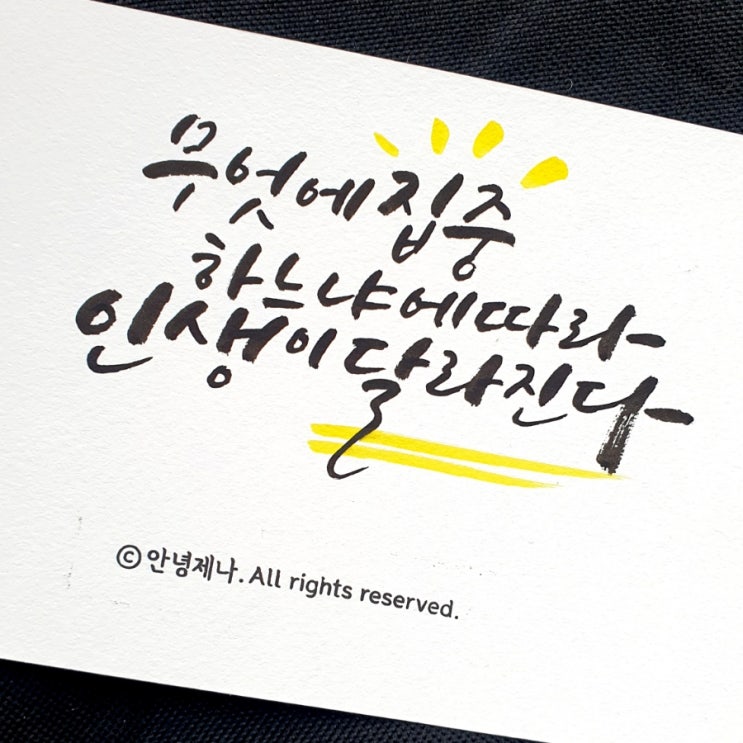 무엇에 집중
하느냐에 따라
인생이 달라진다
ⓒ 안녕제나. All rights reserved.